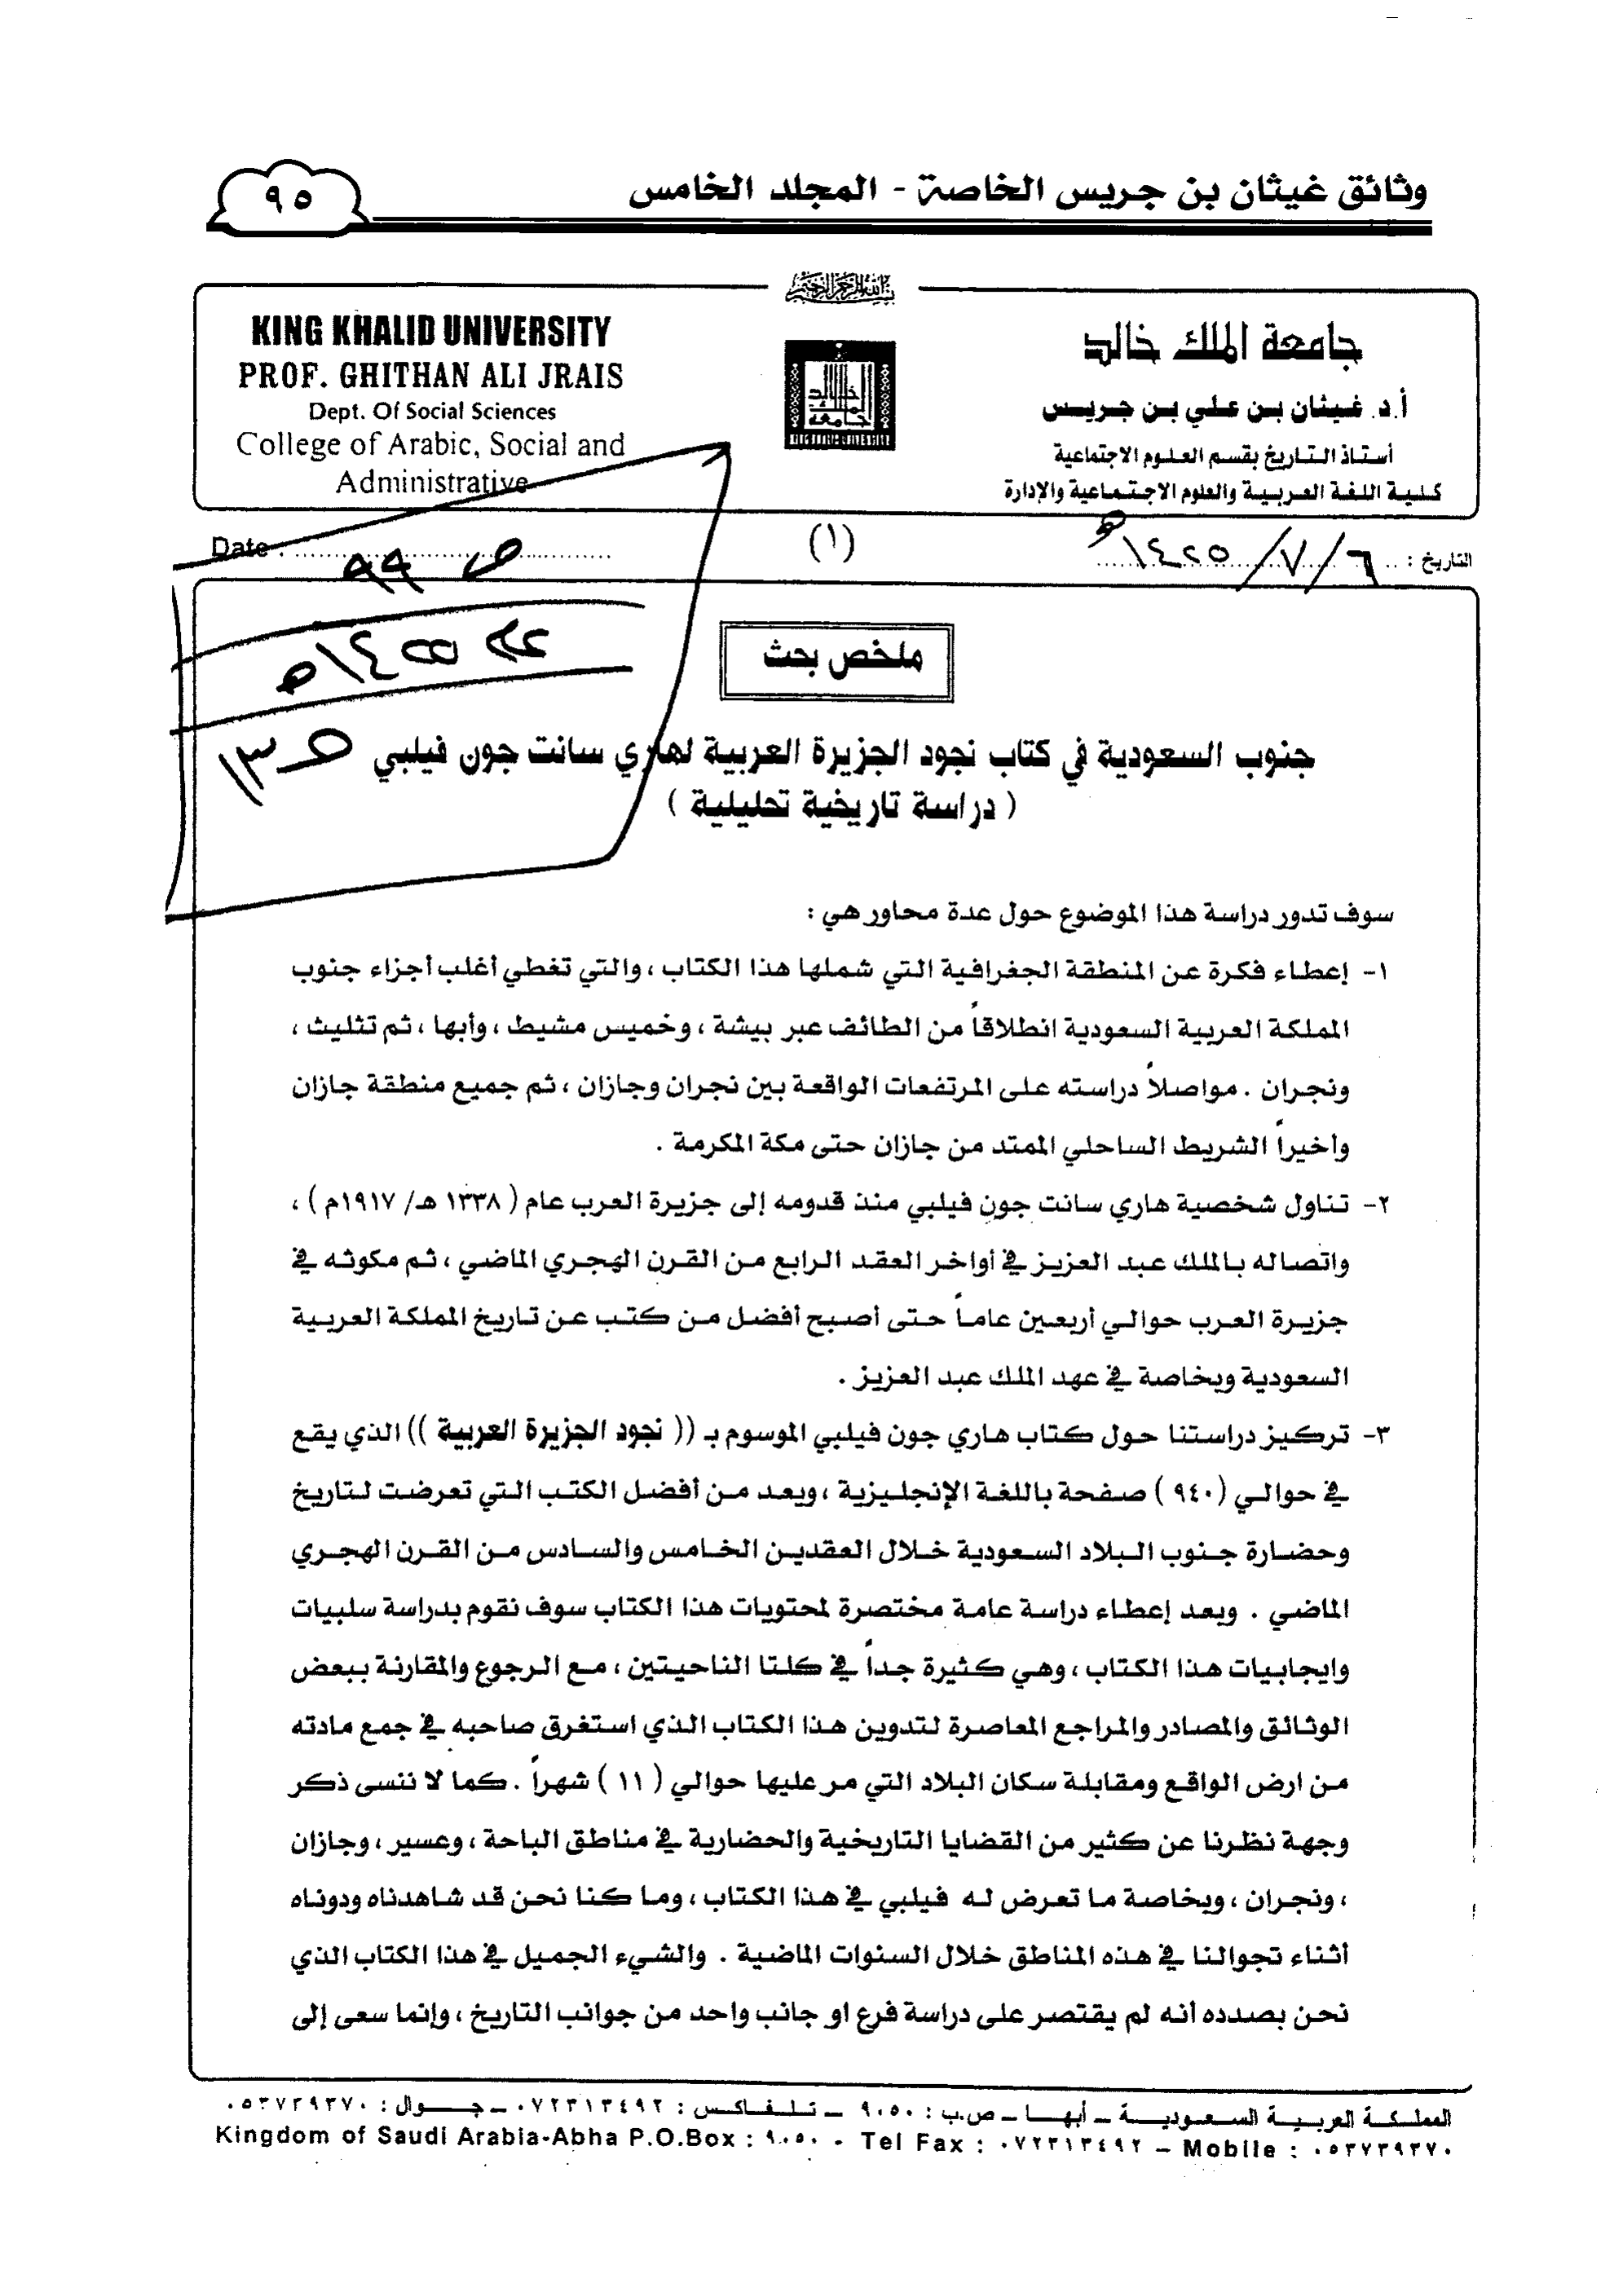 وثائق غيثان بن جريس الخاصة - المجلد الخامس
٩٥
بسم الله الرحمن الرحيم
KING KHALID UNIVERSITY
PROF. GHITHAN ALI JRAIS
Dept. Of Social Sciences
College of Arabic, Social and
Administrative
جامعة الملك خالد
أ.د. غيثان بن علي بن جريس
أستاذ التاريخ بقسم العلوم الاجتماعية
كلية اللغة العربية والعلوم الاجتماعية والإدارة
KING KHALID UNIVERSITY
التاريخ : ٦/٧/١٤٢٥هـ
(١)
Date :
ص ٩٩
ملخص بحث
جنوب السعودية في كتاب نجود الجزيرة العربية لهاري سانت جون فيلبي
( دراسة تاريخية تحليلية )
سوف تدور دراسة هذا الموضوع حول عدة محاور هي :
١- إعطاء فكرة عن المنطقة الجغرافية التي شملها هذا الكتاب ، والتي تغطي أغلب أجزاء جنوب
المملكة العربية السعودية انطلاقاً من الطائف عبر بيشة ، وخميس مشيط ، وأبها ، ثم تثليث ،
ونجران . مواصلاً دراسته على المرتفعات الواقعة بين نجران وجازان ، ثم جميع منطقة جازان
واخيراً الشريط الساحلي الممتد من جازان حتى مكة المكرمة .
٢- تناول شخصية هاري سانت جون فيلبي منذ قدومه إلى جزيرة العرب عام ( ١٣٣٨ هـ/ ١٩١٧م ) ،
واتصاله بالملك عبد العزيز في أواخر العقد الرابع من القرن الهجري الماضي ، ثم مكوثه في
جزيرة العرب حوالي أربعين عاماً حتى أصبح أفضل من كتب عن تاريخ المملكة العربية
السعودية وبخاصة في عهد الملك عبد العزيز .
٣- تركيز دراستنا حول كتاب هاري جون فيلبي الموسوم بـ (( نجود الجزيرة العربية )) الذي يقع
في حوالي (٩٤٠ ) صفحة باللغة الإنجليزية ، ويعد من أفضل الكتب التي تعرضت لتاريخ
وحضارة جنوب البلاد السعودية خلال العقدين الخامس والسادس من القرن الهجري
الماضي . وبعد إعطاء دراسة عامة مختصرة لمحتويات هذا الكتاب سوف نقوم بدراسة سلبيات
وايجابيات هذا الكتاب ، وهي كثيرة جداً في كلتا الناحيتين ، مع الرجوع والمقارنة ببعض
الوثائق والمصادر والمراجع المعاصرة لتدوين هذا الكتاب الذي استغرق صاحبه في جمع مادته
من ارض الواقع ومقابلة سكان البلاد التي مر عليها حوالي ( ١١ ) شهراً . كما لا ننسى ذكر
وجهة نظرنا عن كثير من القضايا التاريخية والحضارية في مناطق الباحة ، وعسير ، وجازان
، ونجران ، وبخاصة ما تعرض له فيلبي في هذا الكتاب ، وما كنا نحن قد شاهدناه ودوناه
أثناء تجوالنا في هذه المناطق خلال السنوات الماضية . والشيء الجميل في هذا الكتاب الذي
نحن بصدده انه لم يقتصر على دراسة فرع او جانب واحد من جوانب التاريخ ، وإنما سعى إلى
المملكة العربية السعودية – أبها – ص.ب : ٩٠٥٠ – تلفاكس : ٠٧٢٣١٣٤٩٢ – جوال : ٠٥٣٧٣٩٣٧٠
Kingdom of Saudi Arabia-Abha P.O.Box : ٩٠٥٠ - Tel Fax : ٠٧٢٣١٣٤٩٢ – Mobile : ٠٥٣٧٣٩٣٧٠